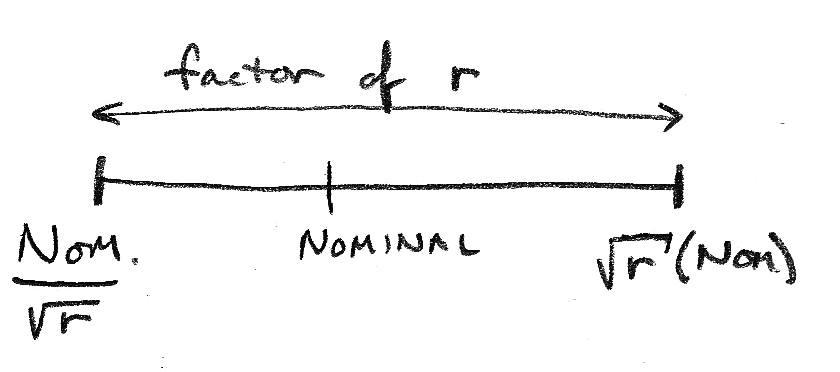 factor of r
Nom.
√r
NOMINAL
√r (Nom)